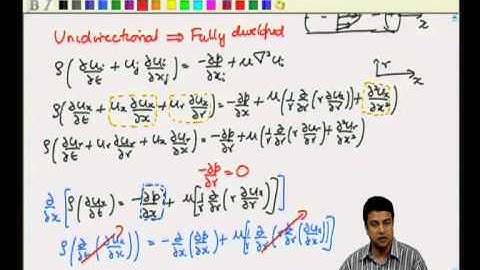 Unidirectional ⇒ Fully developed
x
ρ(∂uᵢ/∂t + uⱼ ∂uᵢ/∂xⱼ) = -∂p/∂xᵢ + μ∇²uᵢ
r
x
ρ(∂uₓ/∂t + uₓ ∂uₓ/∂x + uᵣ ∂uₓ/∂r) = -∂p/∂x + μ(1/r ∂/∂r (r ∂uₓ/∂r) + ∂²uₓ/∂x²)
ρ(∂uᵣ/∂t + uᵣ ∂uᵣ/∂r + uₓ ∂uᵣ/∂x) = -∂p/∂r + μ(1/r ∂/∂r (r ∂uᵣ/∂r) + ∂²uᵣ/∂x²)
-∂p/∂r = 0
∂/∂x [ρ(∂uₓ/∂t) = -∂p/∂x + μ[1/r ∂/∂r (r ∂uₓ/∂r)]]
ρ(∂/∂t (∂uₓ/∂x)) = -∂/∂x (∂p/∂x) + μ[1/r ∂/∂r (r ∂/∂r (∂uₓ/∂x))]